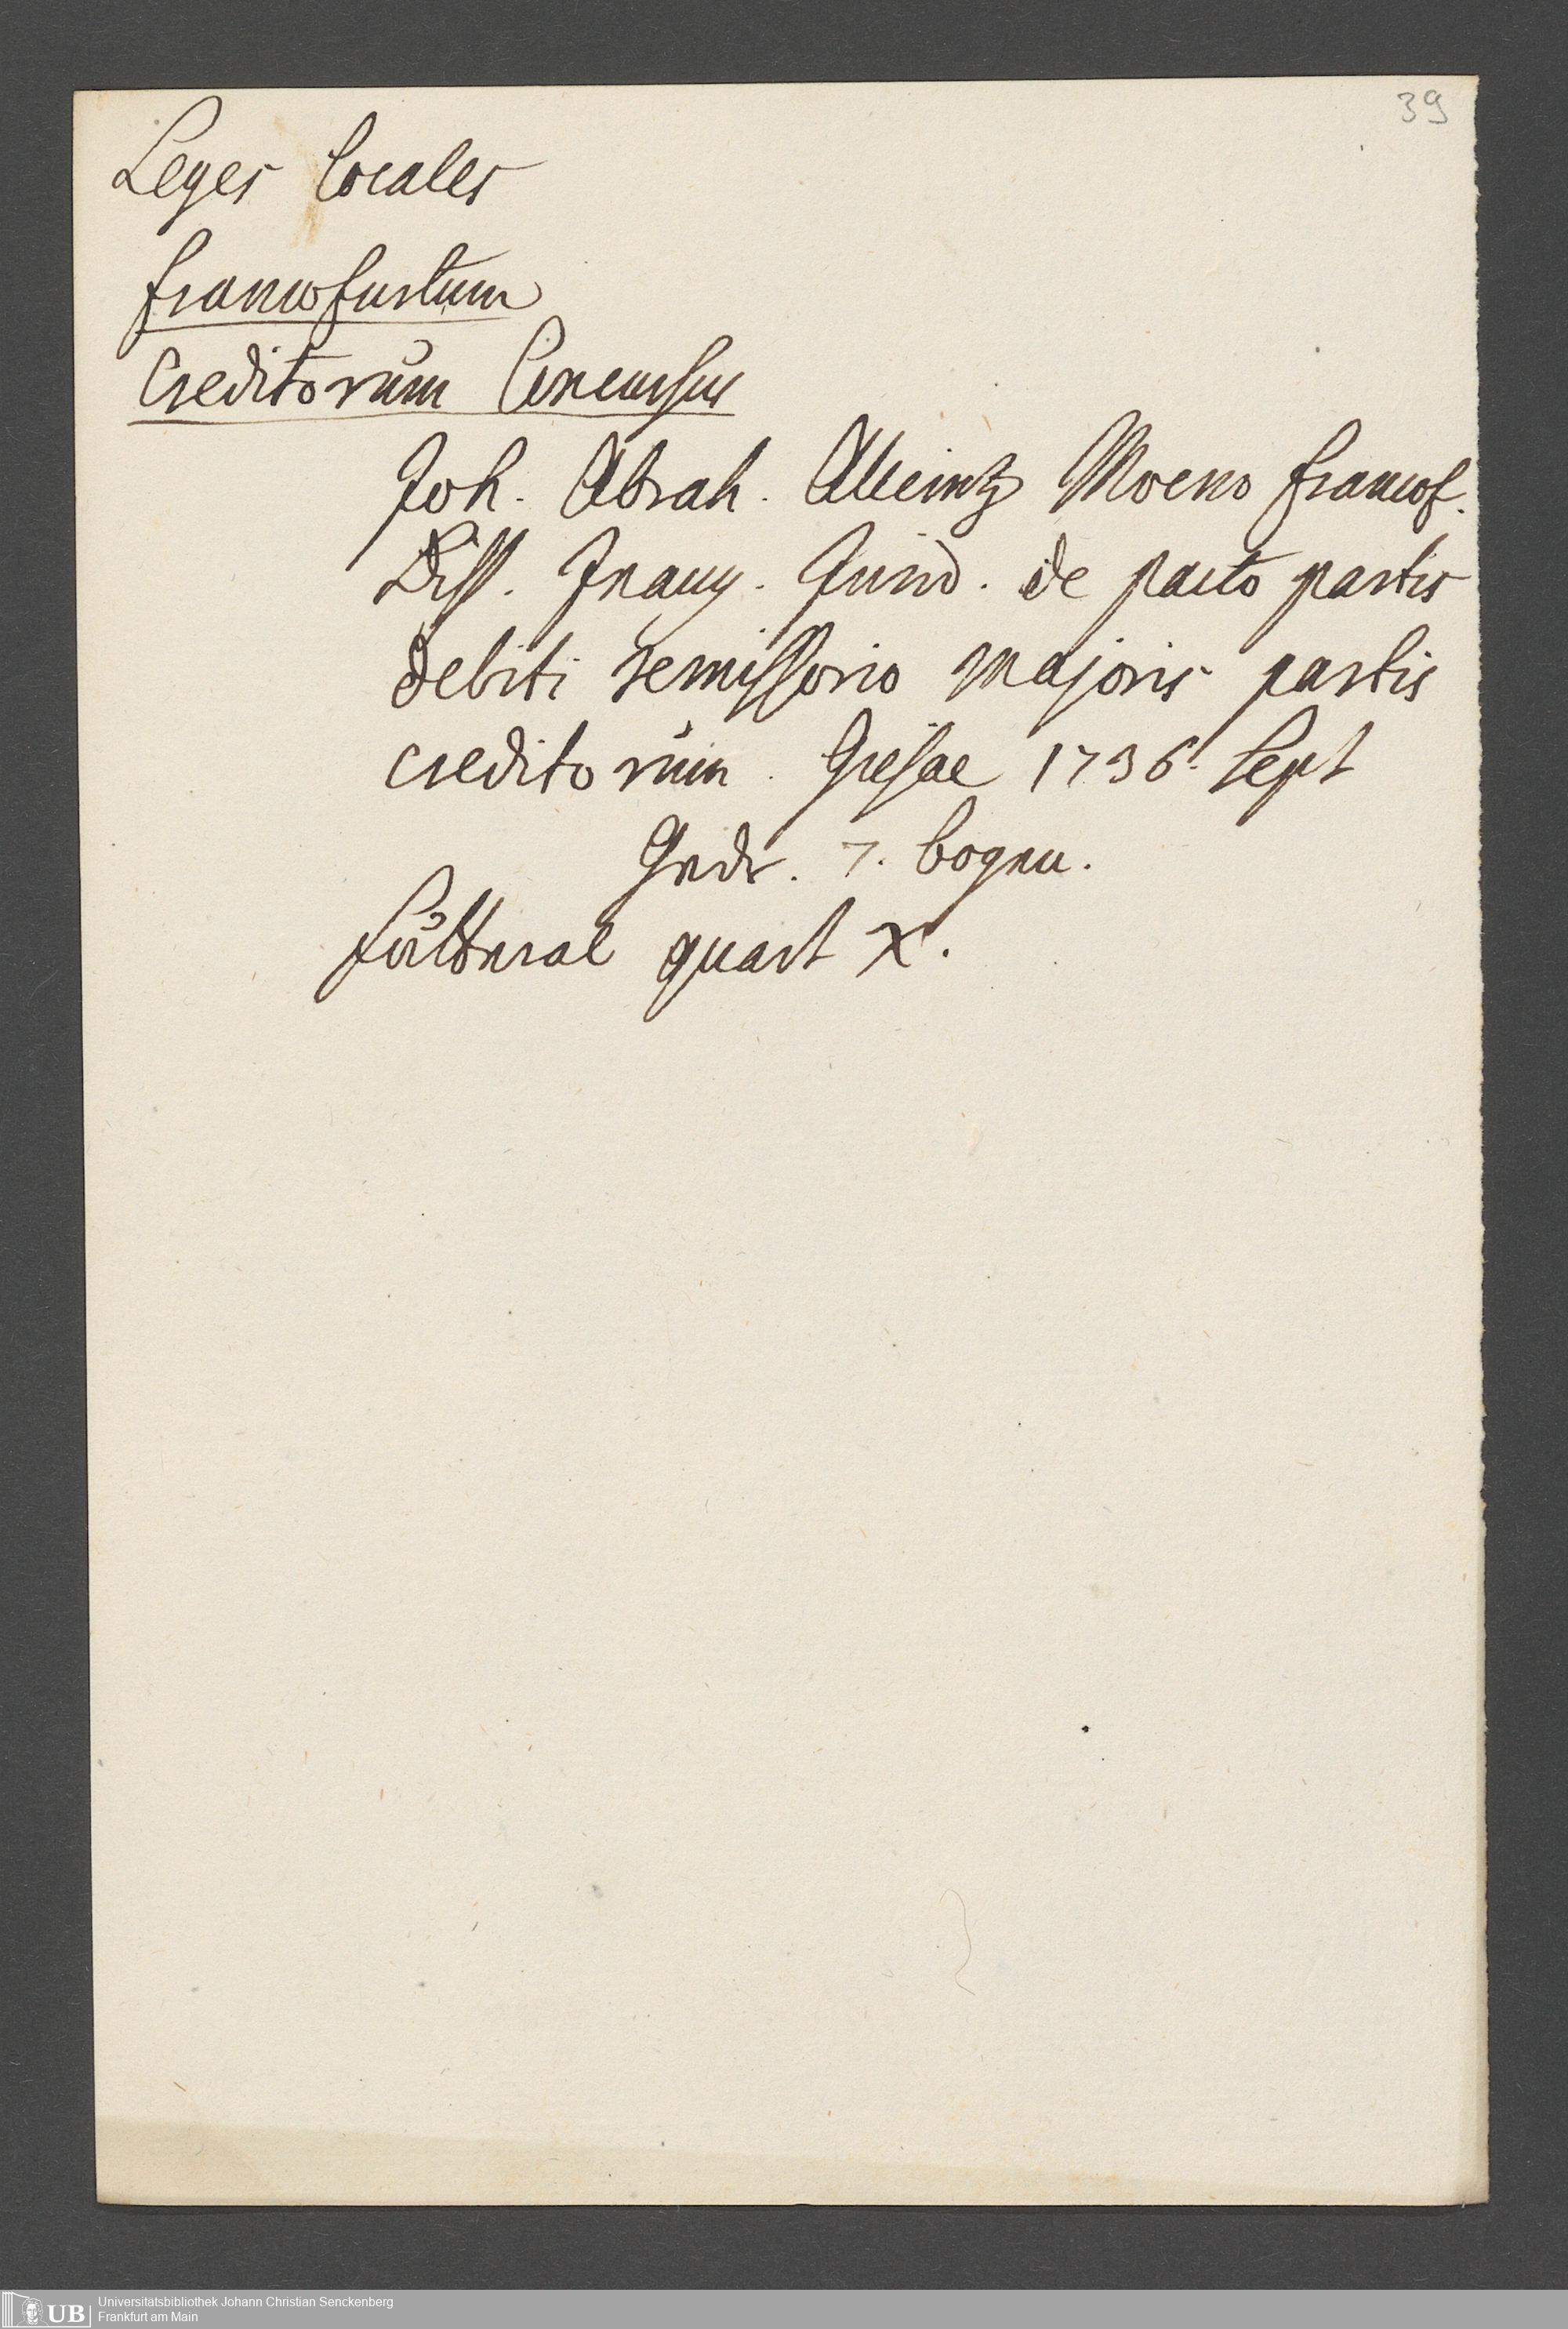 39
Leges locales
francofurtum
Creditorum Concursus
Joh. Abrah. Alleintz Moeno francof.
Diss. Inaug. Jurid. de pacto partis
debiti remissorio majoris partis
creditorum. Giessae 1736. Sept
Gedr. 7. bogen.
futteral quart X.
UB Universitätsbibliothek Johann Christian Senckenberg
Frankfurt am Main